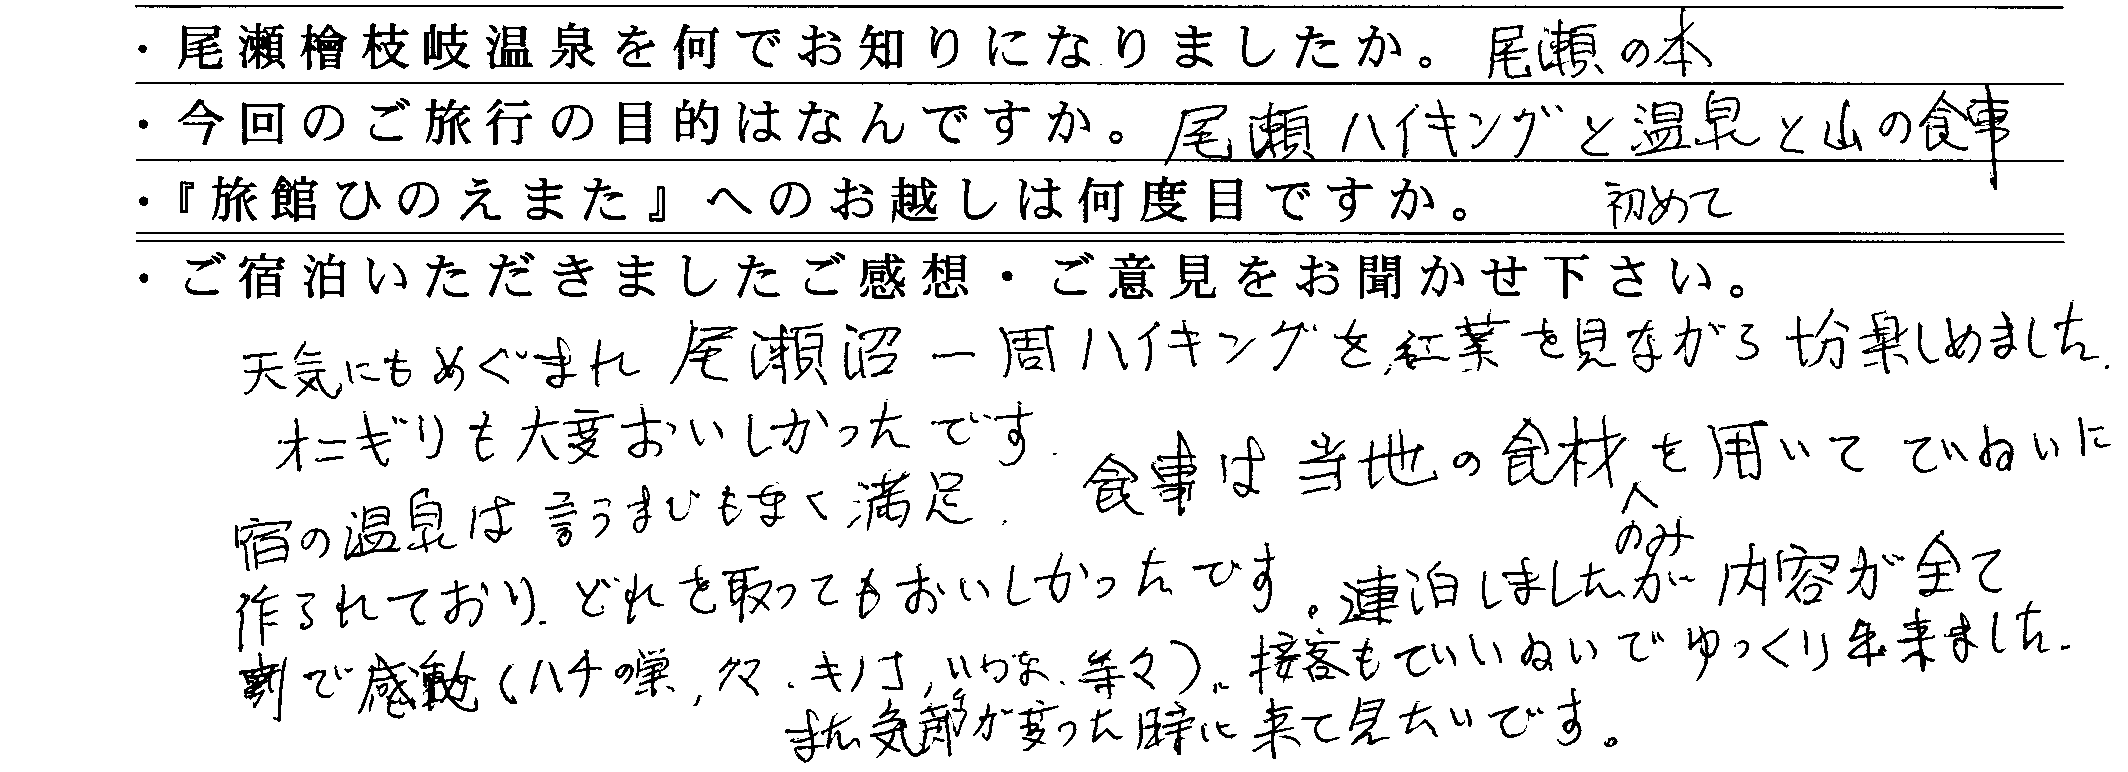 ・尾瀬檜枝岐温泉を何でお知りになりましたか。尾瀬の本
・今回のご旅行の目的はなんですか。尾瀬ハイキングと温泉と山の食事
・『旅館ひのえまた』へのお越しは何度目ですか。 初めて
・ご宿泊いただきましたご感想・ご意見をお聞かせ下さい。
天気にもめぐまれ 尾瀬沼一周ハイキングを、紅葉を見ながら十分楽しめました。
オニギリも大変おいしかったです。
宿の温泉は言うまでもなく満足。 食事は当地の食材のみを用いて ていねいに
作られており、どれを取ってもおいしかったです。連泊しましたが 内容が全て
で感動(ハチの巣、クマ、キノコ、いわな、等々)。接客もていいねいでゆっくり出来ました。
また気節が変った時に来て見たいです。